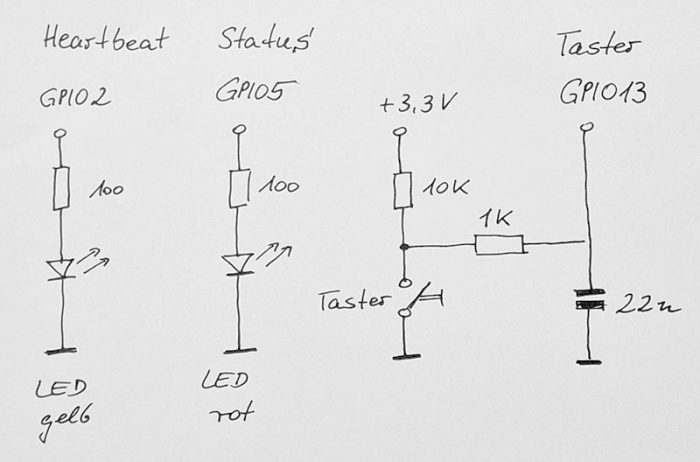 Heartbeat
GPIO2
100
LED
gelb
Status
GPIO5
100
LED
rot
+3,3V
10K
1K
Taster
Taster
GPIO13
22n